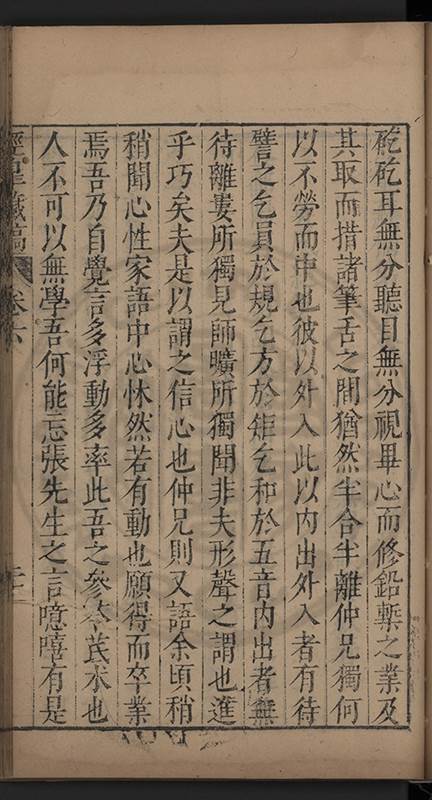 矻矻耳無分聽目無分視畢心而修鉛槧之業及
其取而措諸筆舌之間猶然半合半離仲兄獨何
以不勞而中也彼以外入此以內出外入者有待
譬之乞員於規乞方於矩乞和於五音內出者無
待離婁所獨見師曠所獨聞非夫形聲之謂也進
乎巧矣夫是以謂之信心也仲兄則又語余頃稍
稍聞心性家語中心怵然若有動也願得而卒業
焉吾乃自覺言多浮動多率此吾之參苓芪朮也
人不可以無學吾何能忘張先生之言噫嘻有是
卷六